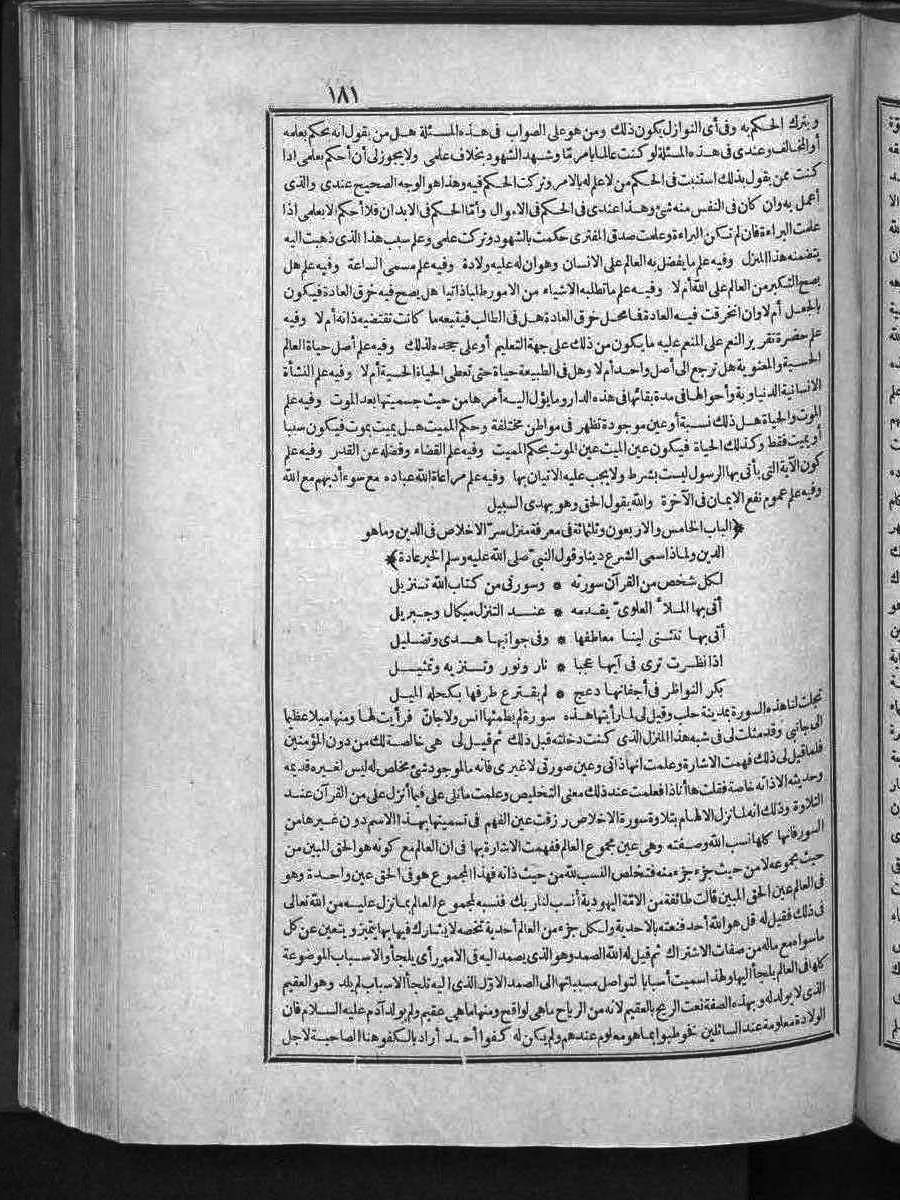 ١٨١
ويترك الحكم به وفى أى النوازل يكون ذلك ومن هو على الصواب فى هذه المسئلة هل من يقول انه يحكم بعلمه
أو المخالف وعندى فى هذه المسئلة لو كنت عالما بامر مّا وشهد الشهود بخلاف علمى ولا يجوز لى أن أحكم بعلمى اذا
كنت ممن يقول بذلك استنبت فى الحكم من لا علم له بالامر وتركت الحكم فيه وهذا هو الوجه الصحيح عندى والذى
أعمل به وان كان فى النفس منه شئ وهذا عندى فى الحكم فى الاموال وأمّا الحكم فى الابدان فلا أحكم الا بعلمى اذا
علمت البراءة فان لم تكن البراءة وعلمت صدق المفترى حكمت بالشهود وتركت علمى وعلم سبب هذا الذى ذهبت اليه
يتضمنه هذا المنزل وفيه علم ما يفضل به العالم على الانسان وهو ان له عليه ولادة وفيه علم مسمى الساعة وفيه علم هل
يصح التكبر من العالم على الله أم لا وفيه علم ما تطلبه الاشياء من الامور طلبا ذاتيا هل يصح فيه خرق العادة فيكون
بالجعل أم لا وان انخرقت فيه العادة فما محل خرق العادة هل فى الطالب فيقبعه ما كانت تقتضيه ذاته أم لا وفيه
علم حضرة تقرير النعم على المنعم عليه ما يكون من ذلك على جهة التعليم أو على جحده لذلك وفيه علم أصل حياة العالم
الحسية والمعنوية هل ترجع الى أصل واحد أم لا وهل فى الطبيعة حياة حتى تعطى الحياة الحسية أم لا وفيه علم النشأة
الانسانية الدنياوية وأحوالها فى مدة بقائها فى هذه الدار وما يؤل اليه أمرها من حيث جسميتها بعد الموت وفيه علم
الموت والحياة هل ذلك نسبة أو عين موجودة تظهر فى مواطن مختلفة وحكم المميت هل يميت بموت فيكون سببا
أو يميت فقط وكذلك الحياة فيكون عين الميت عين الموت بحكم المميت وفيه علم القضاء وفضله عن القدر وفيه علم
كون الآية التى يأتى بها الرسول ليست بشرط ولا يجب عليه الاتيان بها وفيه علم مراعاة الله عباده مع سوء أدبهم مع الله
وفيه علم عموم نفع الايمان فى الآخرة والله يقول الحق وهو يهدى السبيل
﴿الباب الخامس والاربعون وثلثمائة فى معرفة منزل سرّ الاخلاص فى الدين وما هو
الدين ولماذا سمى الشرع دينا وقول النبى صلى الله عليه وسلم الخير عادة﴾
لكل شخص من القرآن سورته * وسورتى من كتاب الله تنزيل
أتى بها الملأ العلوىّ يقدمه * عند التنزل ميكال وجبريل
أتى بها تنثنى لينا معاطفها * وفى جوانبها هدى وتضليل
اذا نظرت ترى فى آيها عجبا * نار ونور وتنزيه وتمثيل
بكر النواظر فى أجفانها دعج * لم يقترع طرفها مكحله الميل
تجلت لنا هذه السورة بمدينة حلب وقيل لى لما رأيتها هذه سورة لم يطمثها انس ولا جانّ فرأيت لها ومنها ميلا عظيما
الى جانبى وقد مثلت لى فى شبه هذا المنزل الذى كنت دخلته قبل ذلك ثم قيل لى هى خالصة لك من دون المؤمنين
فلما قيل لى ذلك فهمت الاشارة وعلمت انها ذاتى وعين صورتى لا غيرى فانه ما لموجود شئ مخلص له ليس لغيره قديمه
وحديثه الا ذاته خاصة فقلت ها أناذا فعلمت عند ذلك معنى التخليص وعلمت ما نلى على فيما أنزل على من القرآن عند
التلاوة وذلك انه لما نزل الالهام بتلاوة سورة الاخلاص رزقت عين الفهم فى تسميتها بهذا الاسم دون غيرها من
السور فانها كلها نسب الله وصفته وهى عين مجموع العالم ففهمت الاشارة بها فى ان العالم مع كونه هو الحق المبين من
حيث مجموعه لا من حيث جزء جزء منه فتخلص النسب لله من حيث ذاته فهذا المجموع هو فى الحق عين واحدة وهو
فى العالم عين الحق المبين قالت طائفة من الامّة اليهودية أنسب لنا ربك فنسبه لمجموع العالم بما نزل عليه من الله تعالى
فى ذلك فقيل له قل هو الله أحد فنعته بالاحدية ولكل جزء من العالم أحدية تخصه لا يشارك فيها بها يتميز ويتعين عن كل
ما سواه مع ماله من صفات الاشتراك ثم قيل له الله الصمد وهو الذى يصمد اليه فى الامور أى يلجأ والاسباب الموضوعة
كلها فى العالم يلجأ اليها ولهذا سميت أسبابا لتواصل مسبباتها الى الصمد الاوّل الذى اليه تلجأ الاسباب لم يلد وهو العقيم
الذى لا يولد له وبهذه الصفة نعت الريح بالعقيم لانه من الرياح ما هى لواقح ومنها ما هى عقيم ولم يولد آدم عليه السلام فان
الولادة معلومة عند السائلين فخوطبوا بما هو معلوم عندهم ولم يكن له كفوا أحد أراد بالكفو هنا الصاحبة لاجل